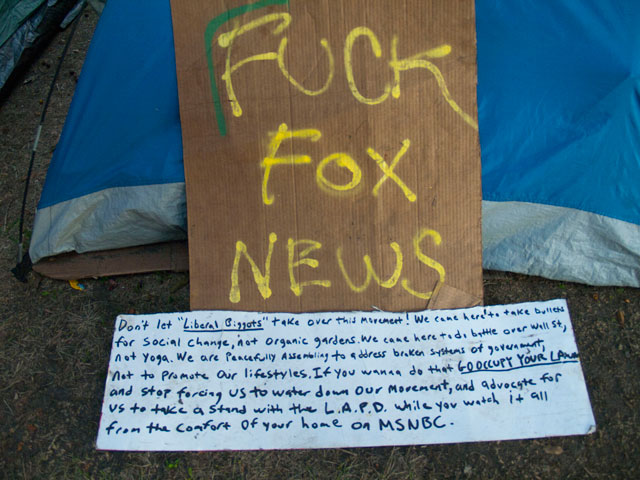 FUCK
FOX
NEWS
Don't let "Liberal Biggots" take over this movement! We came here to take bullets
for social change, not organic gardens. We came here to do battle over Wall st,
not Yoga. We are Peacefully Assembling to address broken systems of government,
not to promote our lifestyles. If you wanna do that GO OCCUPY YOUR LAWN
and stop forcing us to water down our movement, and advocate for
us to take a stand with the L.A.P.D. while you watch it all
from the comfort of your home on MSNBC.